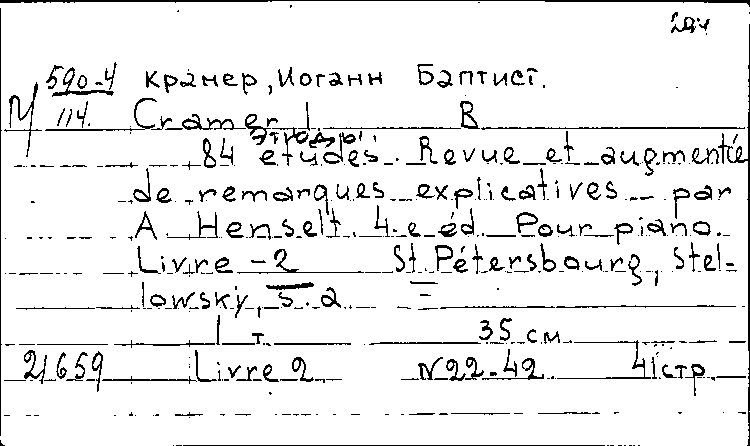 М/ 590-4 Крамер, Иоганн Баптист.
114. Cramer I B
этюды
84 études. Revue et augmentée
de remarques explicatives par
A Henselt. 4.e éd. Pour piano.
Livre - 2 St. Pétersbourg, Stel-
lowsky, s.a.
1 т. 35 см
21659 Livre 2. N22-42 41 стр.